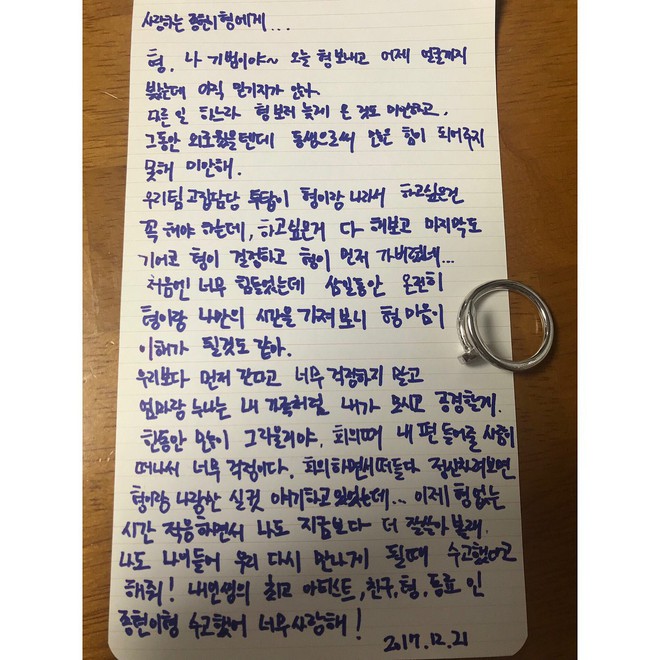 사랑하는 종현이형에게...
형, 나 기범이야~ 오늘 형보내고 어제 얼굴까지
봤는데 아직 믿기지가 않아.
다른 일 하느라 형보러 늦게 온 것도 미안하고,
그동안 외로웠을텐데 동생으로써 안은 형이 되어주지
못해 미안해.
우리팀 고집담당 투탑이 형이랑 나라서 하고싶은건
꼭 해야 하는데, 하고싶은거 다 해보고 마지막도
기어코 형이 결정하고 형이 먼저 가버렸네...
처음엔 너무 힘들었는데 삼일동안 온전히
형이랑 나만의 시간을 가져보니 형 마음이
이해가 될것도 같아.
우리보다 먼저 간다고 너무 걱정하지 말고
엄마랑 누나는 내 가족처럼 내가 모시고 공경할게.
한동안 많이 그리울거야, 회의때 내 편 들어줄 사람이
떠나서 너무 걱정이다. 회의하면서 떠들다 정신차려보면
형이랑 나랑만 실컷 얘기하고 있었는데... 이제 형없는
시간 적응하면서 나도 지금보다 더 잘살아볼래.
나도 나이들어 우리 다시 만나게 될때 수고했다고
해줘! 내인생의 최고 아티스트, 친구, 형, 동료 인
종현이형 수고했어 너무사랑해!
2017.12.21